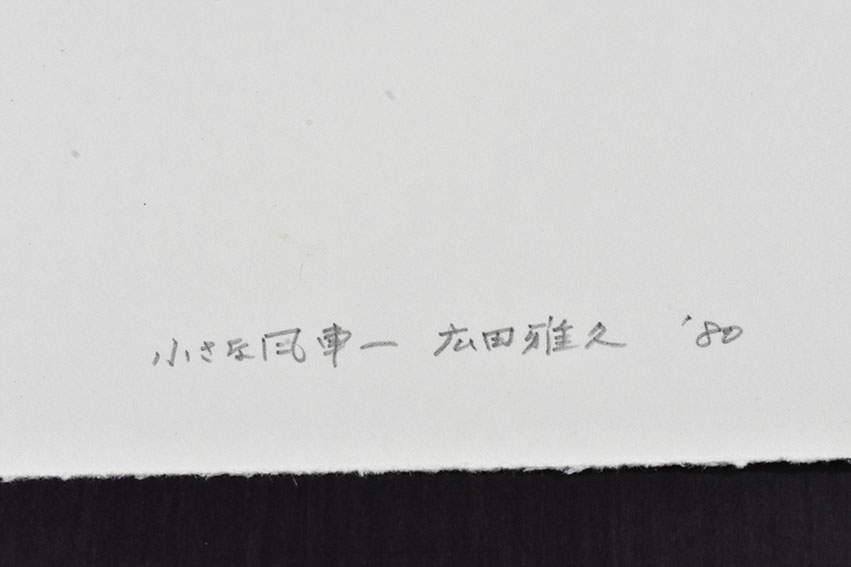 小さな風車一 広田雅久 '80